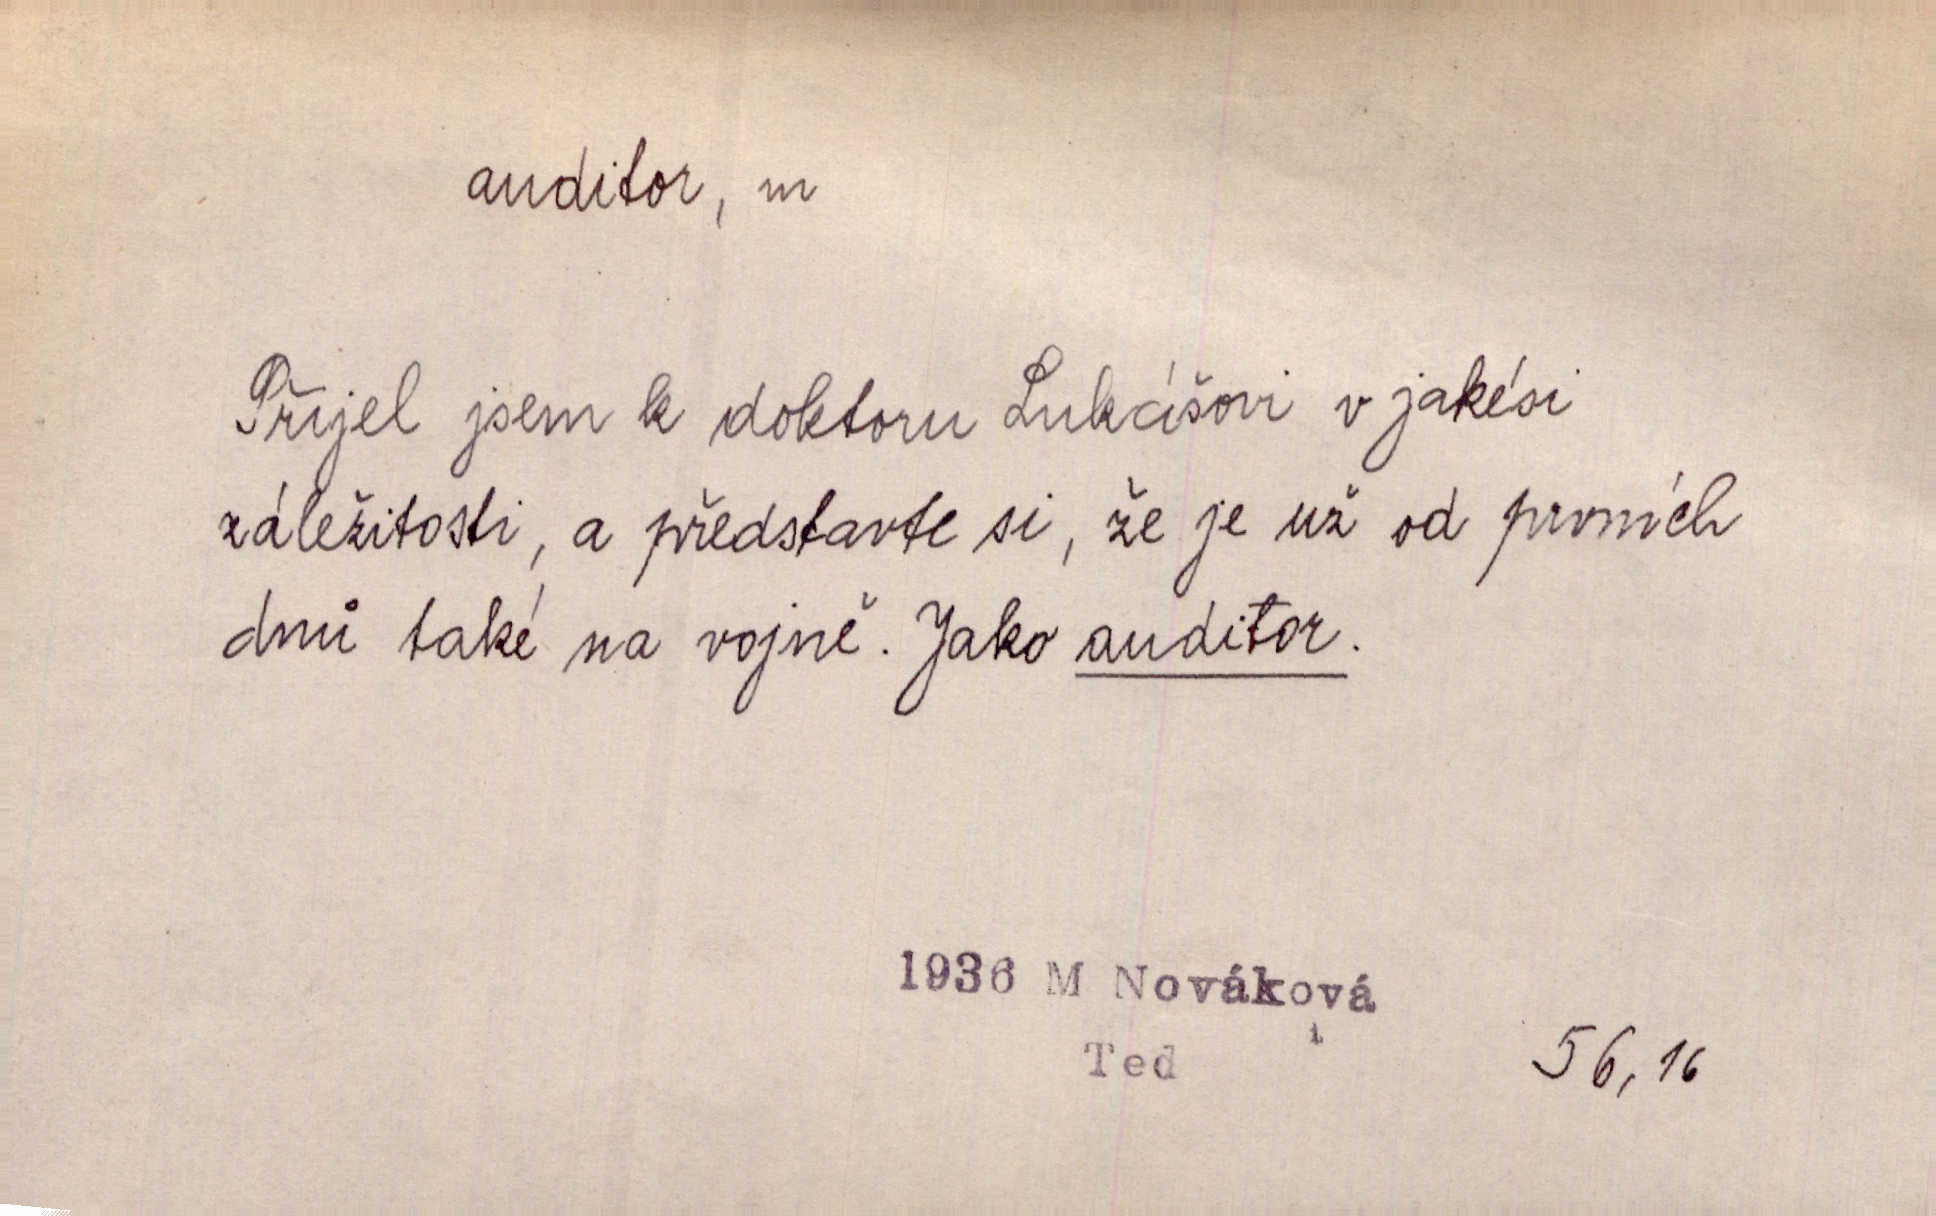 auditor, m
Přijel jsem k doktoru Lukášovi v jakési
záležitosti, a představte si, že je už od prvních
dnů také na vojně. Jako auditor.
1936 M Nováková
1
Ted
56,16